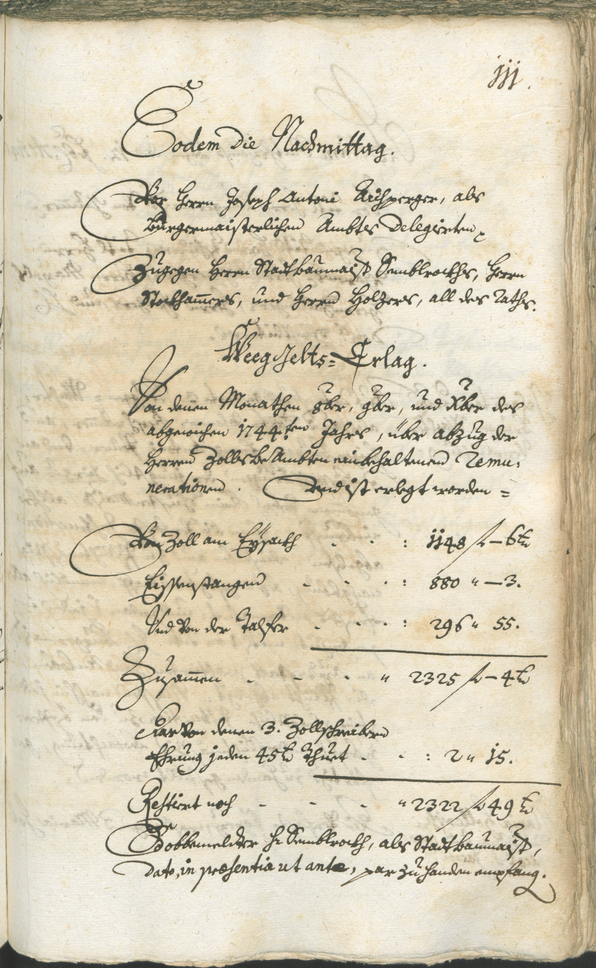 111.
Eodem die Nachmittag.
Vor Herrn Joseph Antoni Aichperger, als
Burgermaisterlichen Ambtes Delegirten,
Zugegen Herrn Stadtbaumaist Semblrockhs, Herrn
Stockhamers, und Herrn Holzers, all des Raths.
Weeggelts=Erlag.
Von denen Monathen 8ber, 9ber, und Xber des
abgewichen 1744.sten Jahrs, über abzug der
Herren Zollsbeambten einbehaltenen Remu:
nerationen. Und ist erlegt worden =
Von Zoll am Eysackh - - : 1148 f - 6 k
Eissenstangen - - - : 880 " - 3.
Und von der Talfer - - - : 296 " 55.
Zusamen - - - " 2325 f - 4 k
von denen 3. Zollschreibern
Ehrung jeden 45 k Thuet - - : 2 " 15.
Restiert noch - - - " 2322 f 49 k
So obbemelder H. Semblrockh, als Stadtbaumaist,
dato, in præsentia ut ante, par zuhanden empfang.